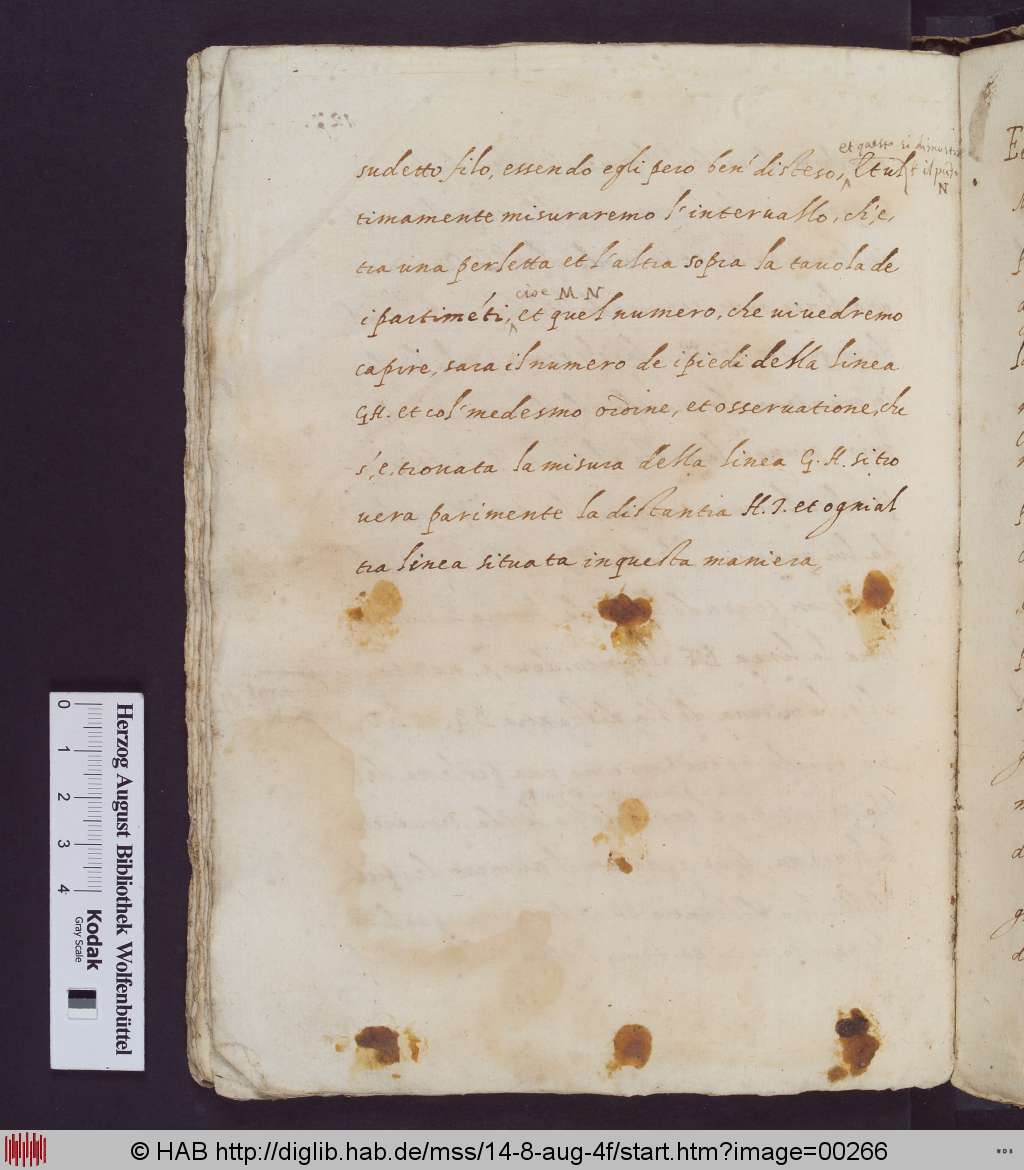 et questo si dimostra
sudetto filo, essendo egli pero ben' disteso, Et ul
p̱ il pūto
N
timamente misuraremo l'intervallo, ch'e,
tra una perletta et l'altra sopra la tavola de
cioe M N
i partiméti, et quel numero, che vi vedremo
capire, sara il numero de i piedi della linea
G H. et col' medesmo ordine, et osservatione, che
s'e, trovata la misura della linea G. H. si tro
vera parimente la distantia H. I. et ogni al
tra linea situata in questa maniera.
0 1 2 3 4
Herzog August Bibliothek Wolfenbüttel
Kodak
Gray Scale
© HAB http://diglib.hab.de/mss/14-8-aug-4f/start.htm?image=00266